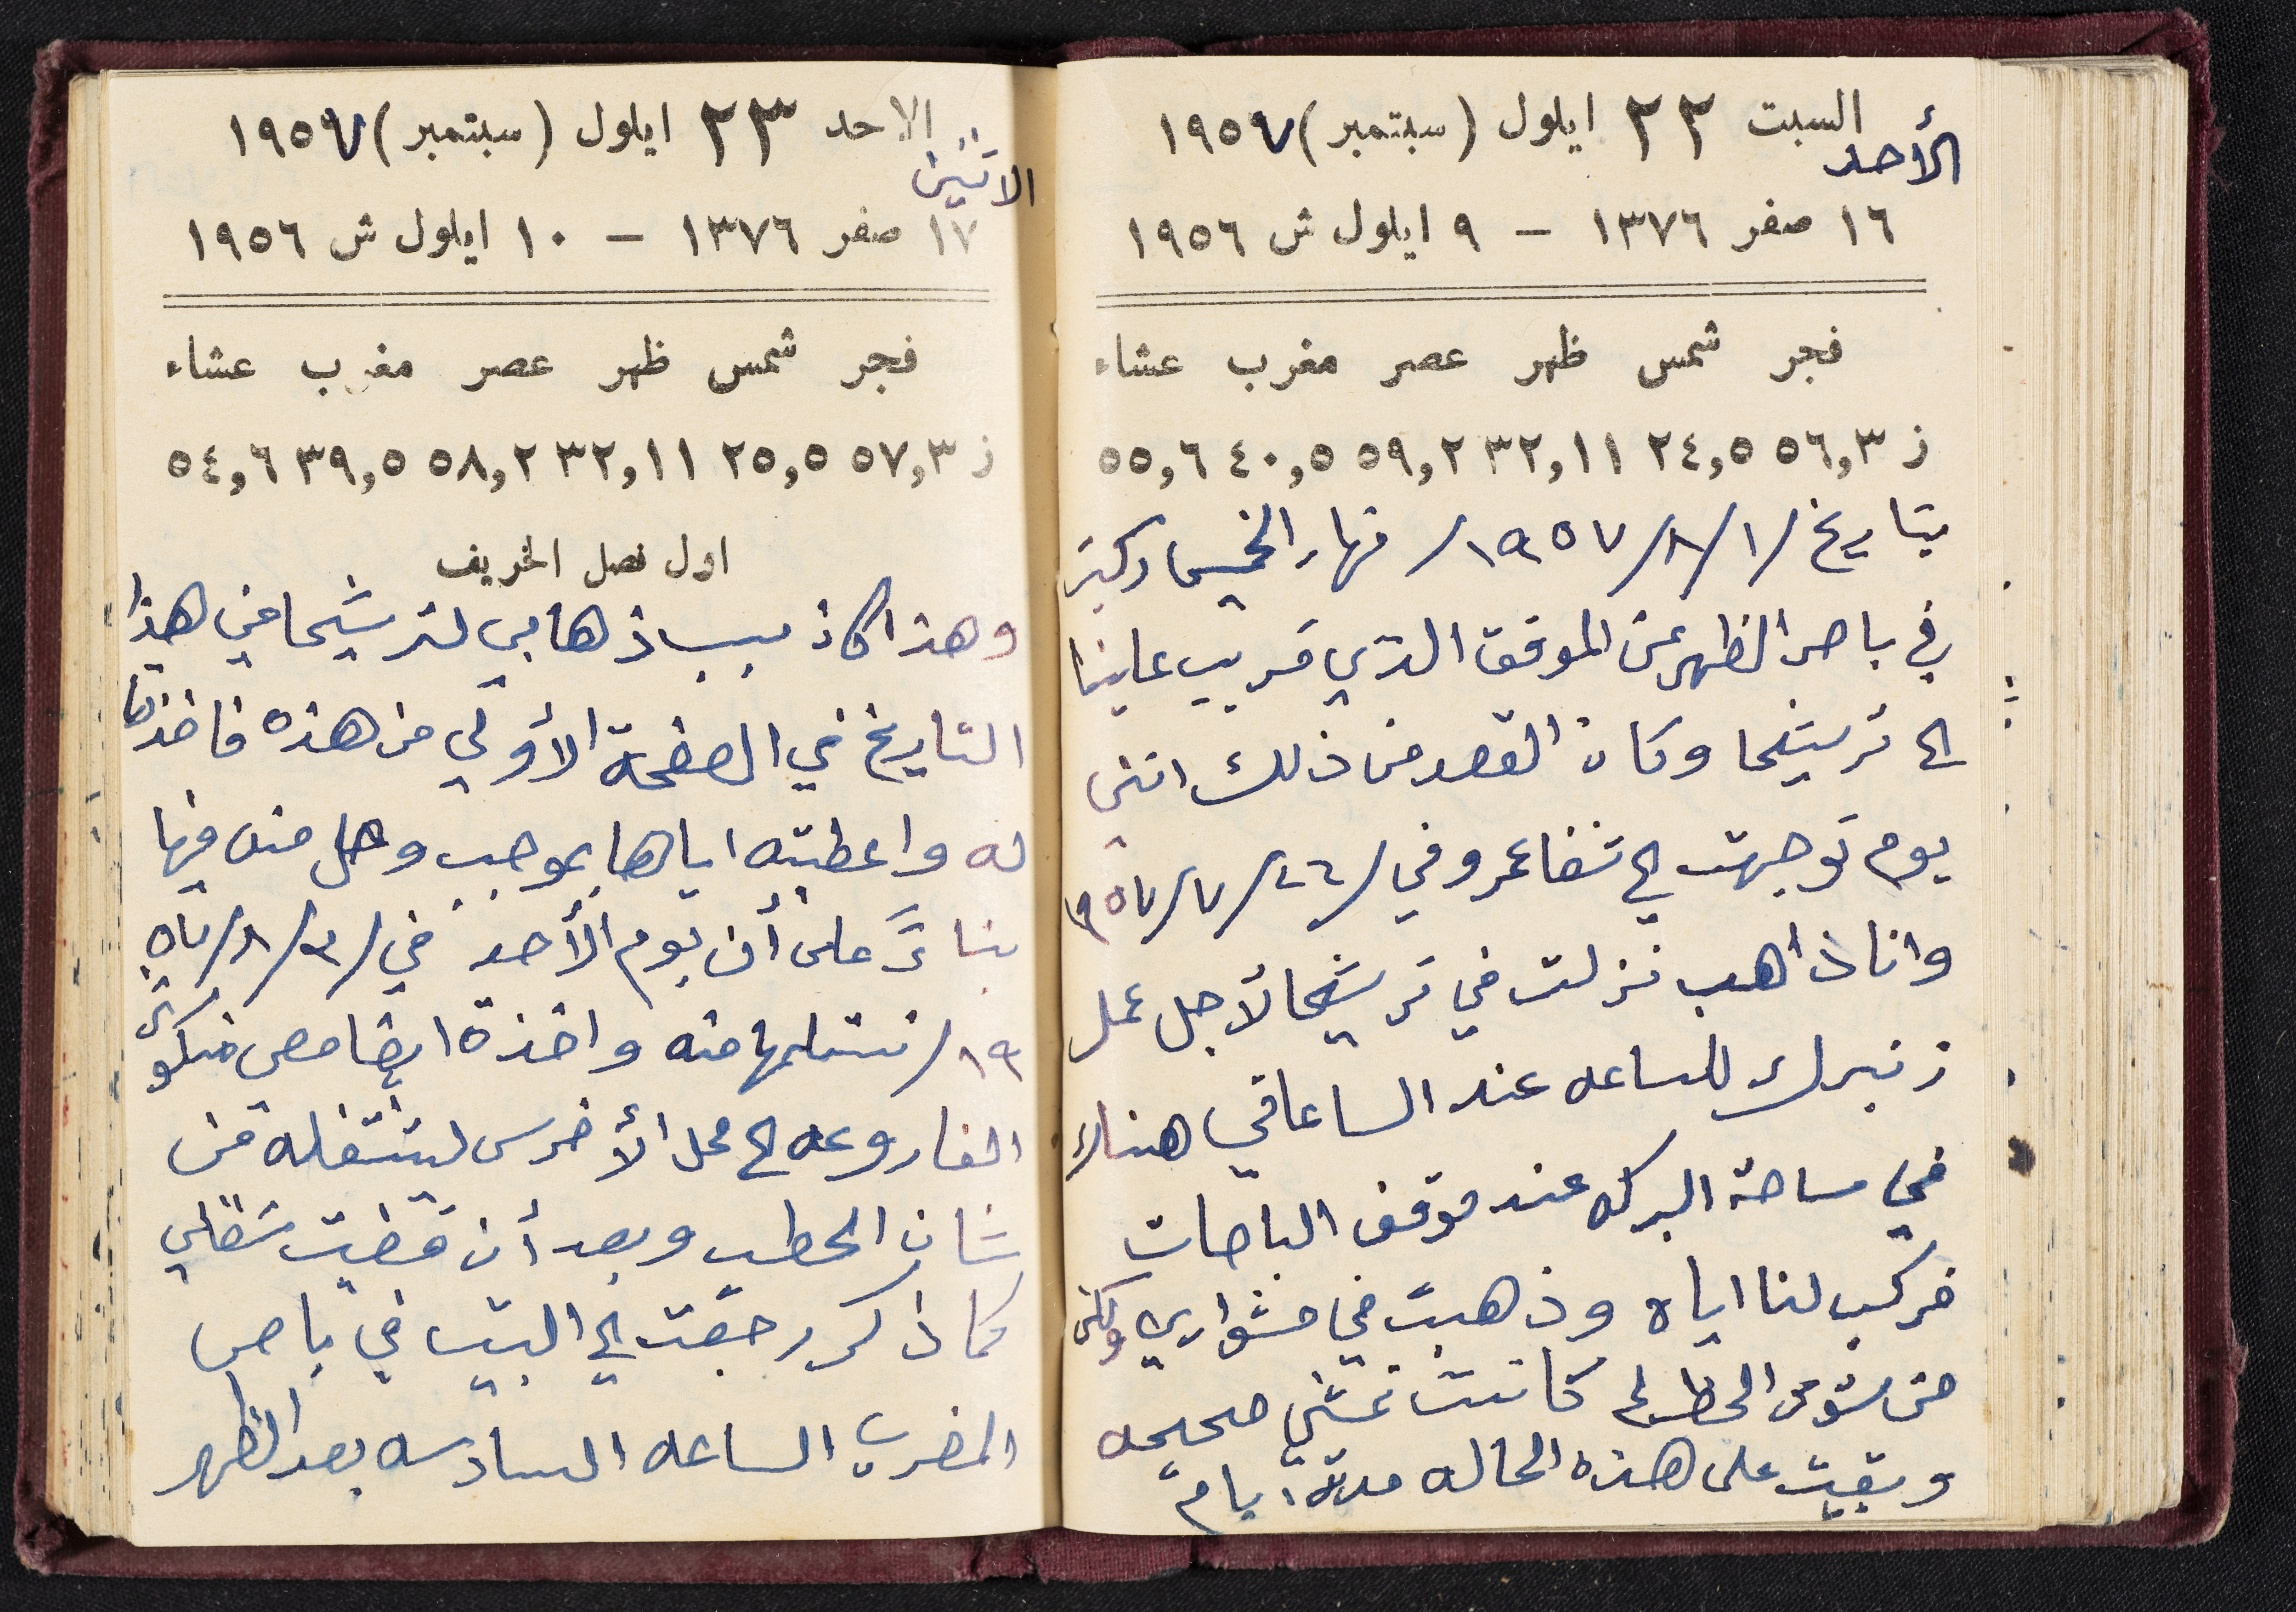 السبت ٢٢ ايلول (سبتمبر) ١٩٥٧
الأحد
١٦ صفر ١٣٧٦ – ٩ ايلول ش ١٩٥٦
فجر شمس ظهر عصر مغرب عشاء
ز ٥٦,٣ ٢٤,٥ ٣٢,١١ ٥٩,٢ ٤٠,٥ ٥٥,٦
بتاريخ /١/٨/١٩٥٧/ نهار الخميس ركبت
في باص الظهر عن الموقف الذي قريب علينا
الى ترشيحا وكان القصد من ذلك انني
يوم توجهت الى شفاعمرو في /٢٦/٧/١٩٥٧
وانا ذاهب نزلت في ترشيحا لأجل عمل
زنبرك للساعه عند الساعاتي هناك
في ساحة البركه عند موقف الباصات
فركب لنا اياه وذهبت في مشواري ولكن
من شوم الحظ لم كانت تمشي صحيحه
وبقيت على هذه الحاله مدة ايام
الاحد ٢٣ ايلول (سبتمبر) ١٩٥٧
الاثنين
١٧ صفر ١٣٧٦ – ١٠ ايلول ش ١٩٥٦
فجر شمس ظهر عصر مغرب عشاء
ز ٥٧,٣ ٢٥,٥ ٣٢,١١ ٥٨,٢ ٣٩,٥ ٥٤,٦
اول فصل الخريف
وهذا كان سبب ذهابي لترشيحا في هذا
التاريخ في الصفحة الأولى من هذه فاخذتها
له واعطيته اياها بموجب وصل منه فيها
بناءً على أن يوم الأحد في /٤/٨/٥٧
١٩/ نستلمها منه واخذة ايضا معي
الفاروعه الى محل الأخرس ليشتغله من
شان الحطب وبعد أن قضيت شغلي
كما ذكر رجعت الى البيت في باص
المغرب الساعه السادسه بعد الظهر